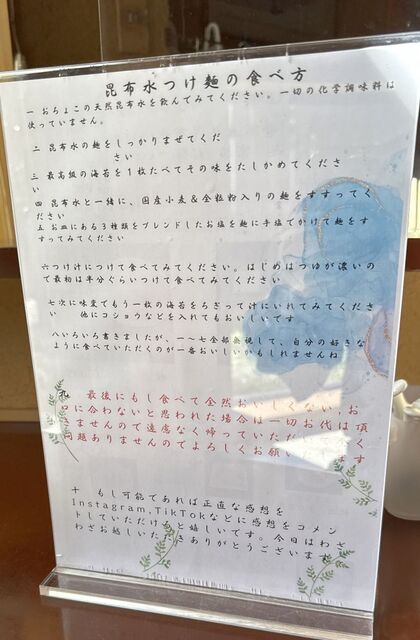 昆布水つけ麺の食べ方
一 おちょこの天然昆布水を飲んでみてください。一切の化学調味料は
使っていません。
二 昆布水の麺をしっかりまぜてくだ
さい
三 最高級の海苔を1枚たべてその味をたしかめてくださ
い
四 昆布水と一緒に、国産小麦&全粒粉入りの麺をすすってく
ださい
五 お皿にある3種類をブレンドしたお塩を麺に手塩でかけて麺をす
すってみてください
六つけ汁につけて食べてみてください。はじめはつゆが濃いの
で最初は半分ぐらいつけて食べてみてください
七次に味変でもう一枚の海苔をちぎって汁にいれてみてくださ
い 他にコショウなどを入れてもおいしいです
八いろいろ書きましたが、一~七全部無視して、自分の好きな
ように食べていただくのが一番おいしいかもしれませんね
九 最後にもし食べて全然おいしくない、お
口に合わないと思われた場合は一切お代は頂
きませんので遠慮なく帰っていただいて
問題ありませんのでよろしくお願い ます
十 もし可能であれば正直な感想を
Instagram,TikTokなどに感想をコメン
トしていただけ と嬉しいです。今日はわざ
わざお越しいただき ありがとうございます